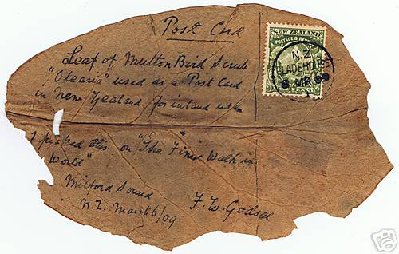 Post Card
Leaf of Mutton Bird Scrub
"Olearia" used as a Post Card
in New Zealand for inland use
I picked this on "The Finest Walk in
World"
Milford Sound
N.Z. March 6/09
NEW ZEALAND
N.Z